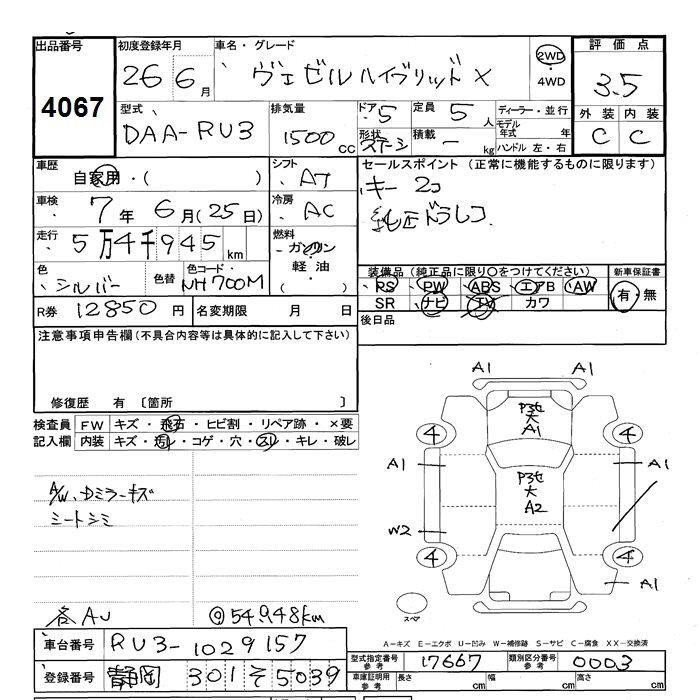 出品番号 初度登録年月 車名・グレード 評価点
4067 26 6月 ヴェゼルハイブリッド X 2WD 3.5
4WD
型式 排気量 ドア 定員 ディーラー・並行 外装 内装
DAA-RU3 1500cc 5 5人 モデル年式 年 C C
形状 ステーシ 積載 － kg ハンドル 左・右
車歴 シフト セールスポイント (正常に機能するものに限ります)
自家用・( ) AT キー 2コ
車検 7年 6月(25日) 冷房 AC 純正ドラレコ
走行 5万4千945km 燃料 ガソリン・軽油・( )
色 シルバー 色替 色コード NH700M 装備品(純正品に限り○をつけてください) 新車保証書
PS PW ABS エアB AW 有・無
R券 12850円 名変期限 月 日 SR ナビ TV カワ
注意事項申告欄(不具合内容等は具体的に記入して下さい) 後日品
修復歴 有 〔箇所 〕
検査員 FW キズ・飛石・ヒビ割・リペア跡・×要
記入欄 内装 キズ・汚レ・コゲ・穴・スレ・キレ・破レ
A1 A1
P3セ
大
A1
4 4
A1 P3セ A1
大
A2
W2
4 4
A1
A/W、Dミラーキズ
シートシミ
各AU ◎54,948km
スペア
A－キズ E－エクボ U－凹み W－補修跡 S－サビ C－腐食 XX－交換済
車台番号 RU3-1029157 型式指定番号 参考 17667 類別区分番号 参考 0003
登録番号 静岡 301 そ 5039 車庫証明用 参考 長さ cm 幅 cm 高さ cm